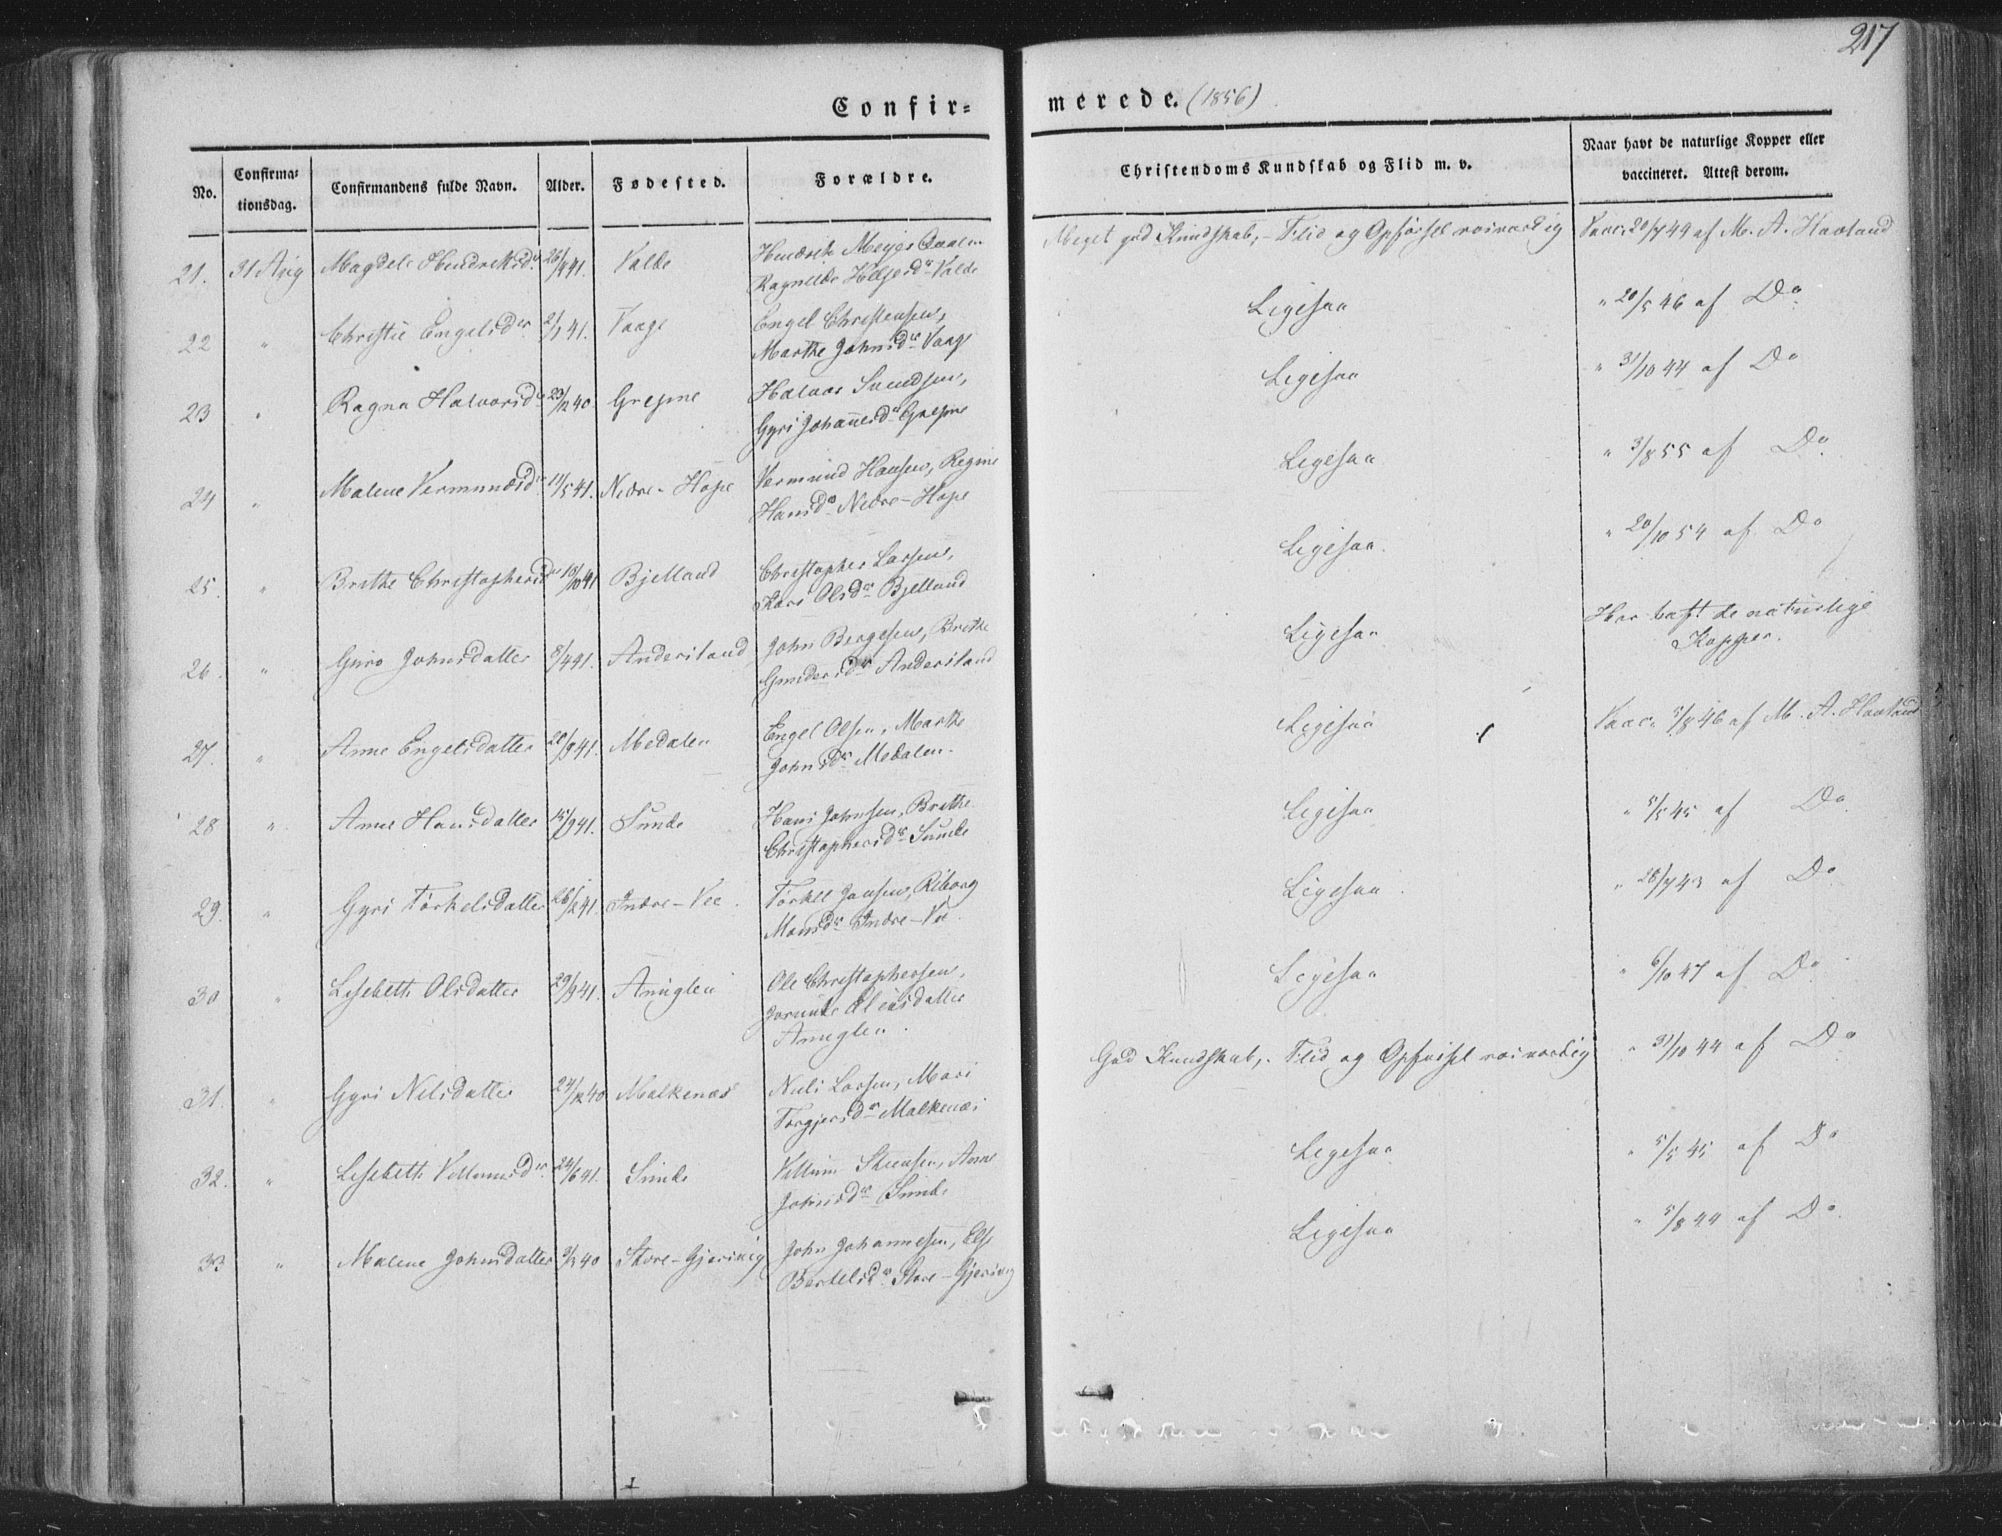 217
Confir= merede. (1856)
No. Confirma= tionsdag. Confirmandens fulde Navn. Alder. Fødested. Forældre. Christendoms Kundskab og Flid m. v. Naar havt de naturlige Kopper eller vaccineret. Attest derom.
21. 31 Aug Magdele Hendriksdr 41. Valde Hendrik Meyer
Ragnilde Helgesdr Valde Meget god Kundskab, - Flid og Opførsel roisværdig Vacc. 20/7 49 af M. A. Haaland
22 " Christie Engelsdr 2/1 41. Vaage Engel Christensen,
Marthe Johnsdr Vaage Ligesaa " 20/5 46 af Do
23 " Ragna Halvorsdr 23/12 40. Grepne Halvor Svendsen,
Gyri Johannesdr Grepne Ligesaa " 31/10 44 af Do
24 " Malene Vermundsdr 11/5 41. Nedre-Hope Vermund Hansen, Regine
Hansdr Nedre-Hope Ligesaa " 3/8 55 af Do
25. " Brithe Christophersdr 18/10 41 Bjelland Christopher Larsen,
Kari Olsdr Bjelland Ligesaa. " 20/10 54 af Do
26. " Guro Johnsdatter 8/4 41. Andersland John Bergesen, Brithe
Gundersdr Andersland Ligesaa Har haft de naturlige
Kopper.
27. " Anne Engelsdatter 20/9 41. Medalen Engel Olsen, Marthe
Johnsdr Medalen. Ligesaa Vacc. 5/8 46 af M. A. Haaland
28 " Anne Hansdatter 15/9 41. Sunde Hans Johnsen, Brithe
Christophersdr Sunde Ligesaa " 5/5 45 af Do
29. " Gyri Torkelsdatter 26/2 41. Indre-Vee. Torkel Jansen, Riborg
Monsdr Indre-Vee. Ligesaa. " 28/7 43 af Do
30 " Lisebeth Olsdatter 29/9 41. Anuglen Ole Christophersen,
Jorunde datter
Anuglen. Ligesaa " 6/10 47 af Do
31. " Gyri Nilsdatter 24/12 40 Malkenæs Nils Larsen, Mari
Torgjersdr Malkenæs God Kundskab, - Flid og Opførsel roisværdig " 31/10 44 af Do
32. " Lisebeth Villumsdr. 24/6 41. Sunde Villum Steensen, Anne
Johnsdr Sunde Ligesaa " 5/5 45 af Do
33 " Malene Johnsdatter 3/3 40 Store-Gjersvig John Johannesen, Else
Bertelsdr Store-Gjersvig Ligesaa " 5/8 44 af Do